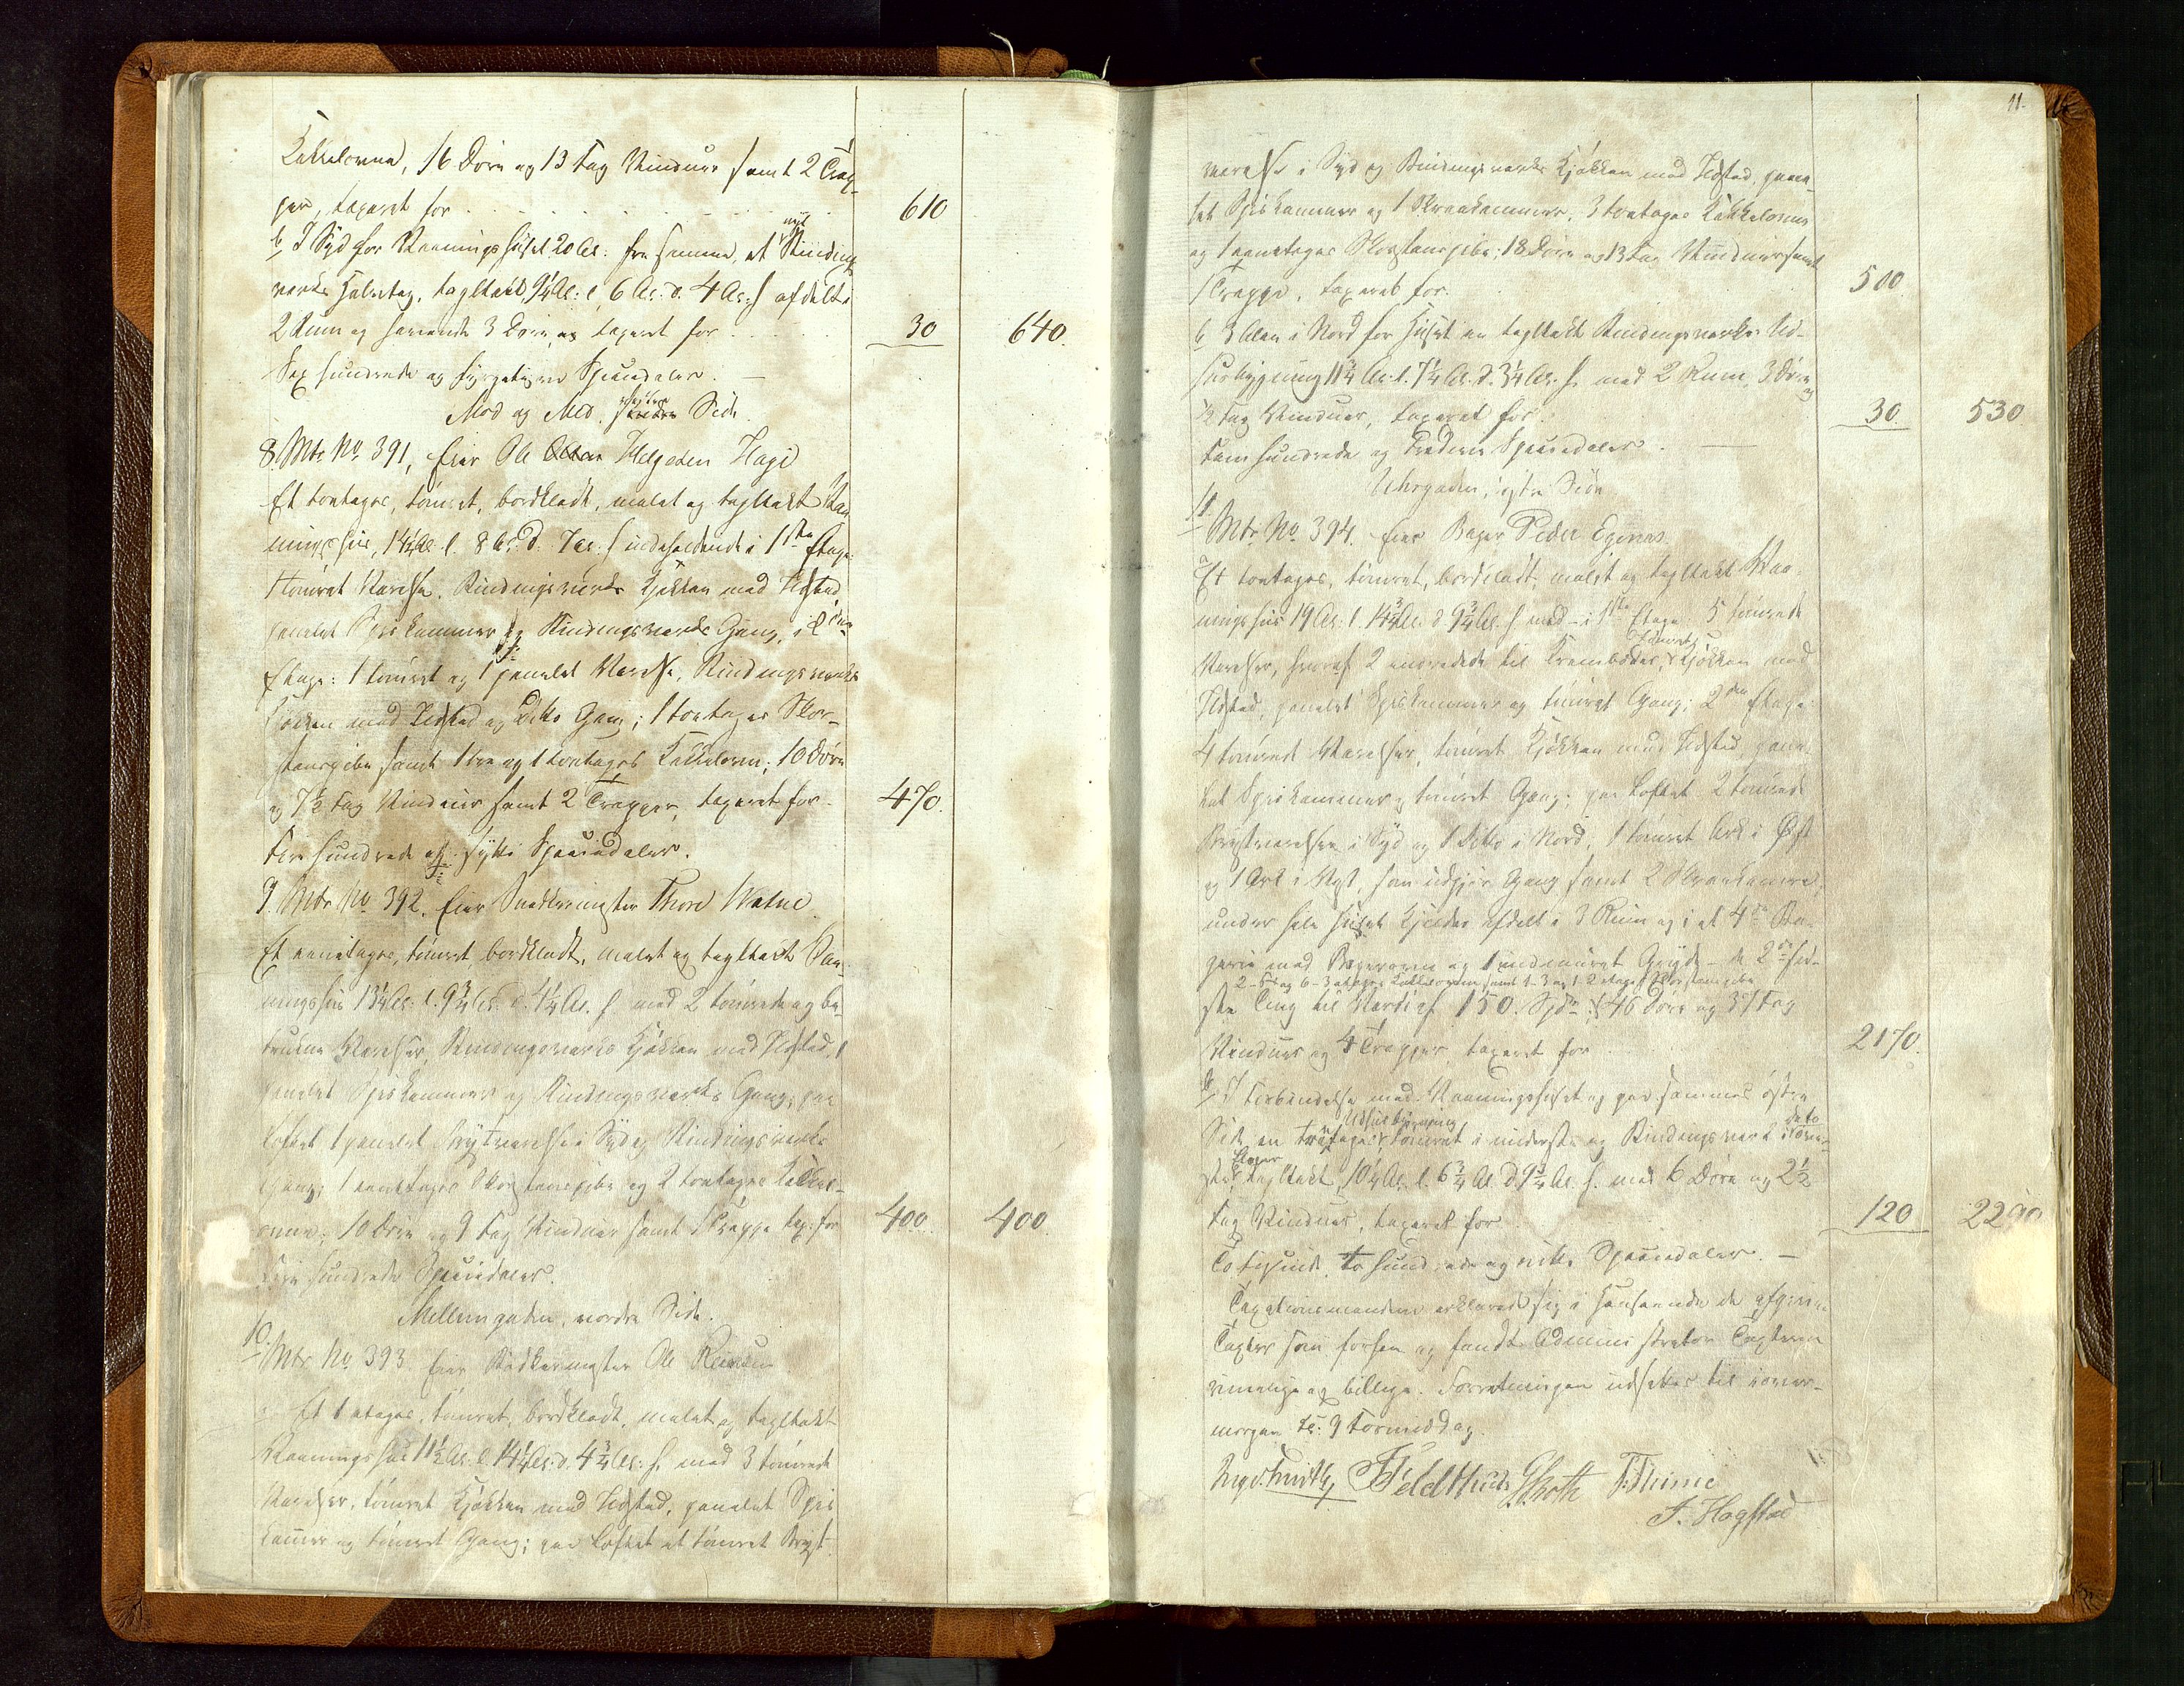 Kakkelovne, 16 Döre og 13 Fag Vinduer samt 2 Trap-
per, taxeret for 610
b, I Syd for Vaaningshuset 20 Al: fra samme, et nyt Bindings
verks Halvtag, tagltækt, 9¼ Al: l. 6 Al: d. 4 Al: h afdelt i
2 Rum og havende 3 Döre, er taxeret for 30 640.
Sex hundrede og fyrgetyve Speciedaler. —
Mod og Med, Side.
8. Mtr. No. 391, Eier Ole Helgesen Hagé
Et toetages, tömret, bordklædt, malet og tagltækt Vaa-
ningshus, 14½ Al. l. 8 Al: d. 7 Al: h indeholdende i 1ste Etage:
1 tömret Værelse, Bindingsverks Kjökken med Ildsted,
panelet Spiskammer og Bindingsverks Gang, i 2den
Etage: 1 tömret og 1 panelet Værelse, Bindingsverks
Kjökken med Ildsted og Ditto Gang; 1 toetages Skor-
stenspibe samt 1 tre og 1 toetages Kakkelovn; 10 Döre
og 7½ Fag Vinduer samt 2 Trapper, taxeret for 470.
Fire hundrede og sytti Speciedaler.
9. Mtr. No. 392. Eier Snedkermester Thore Watne.
Et eenetages, tömret, bordklædt, malet og tagltækt Vaa-
ningshus 13¼ Al: l. 9¾ Al: d. 4¼ Al. h. med 2 tömrede og be-
trukne Værelser, Bindingsverks Kjökken med Ildsted, 1
panelet Spiskammer og Bindingsverks Gang; paa
Loftet 1 panelet Bryst­værelse i Syd og Bindingsverks
Gang; 1 eenetages Skorstenspibe og 2 toetages Kakkel-
ovne; 10 Döre og 9 Fag Vinduer samt 1 Trappe tax: for 400. 400.
Fire hundrede Speciedaler.
Mellemgaden, nordre Side.
10. Mtr. No. 393. Eier Bödkermester Ole
Et 1 etages, tömret, bordklædt, malet og tagltækt
Vaaningshus 11½ Al. l. 14¼ Al: d. 4¾ Al: h. med 3 tömrede
Værelser, tömret Kjökken med Ildsted, panelet Spis
kammer og tömret Gang; paa Loftet et tömret Bryst-
11.
værelse i Syd og Bindingsverks Kjökken med Ildsted, pane-
let Spiskammer og 1 Skraakammer, 3 toetages Kakkelovne
og 1 eenetages Skorstenspibe; 18 Döre og 13 Fag Vinduer samt
1 Trappe, taxeret for 500
b, 3 Alen i Nord for Huset en tagltækt Bindingsverks Ud-
husbygning 11¾ Al. l. 7¼ Al. d. 3¼ Al. h. med 2 Rum, 3 Döre og
½ Fag Vinduer, taxeret for 30. 530.
Fem hundrede og Tredive Speciedaler. —
Uhrgaden, östre Side
11. Mtr. No. 394. Eier Bager Peder Egenes.
a, Et toetages, tömret, bordklædt, malet og tagltækt Vaa-
ningshus 19 Al: l. 14¾ Al. d. 9¾ Al. h med - i 1ste Etage 5 tömrede
Værelser, hvoraf 2 indredede til Kramboder, tömret Kjökken med
Ildsted, panelet Spiskammer og tömret Gang; 2den Etage:
4 tömrede Værelser, tömret Kjökken med Ildsted, pane-
let Spiskammer og tömret Gang; paa Loftet 2 tömrede
Brystværelser i Syd og 1 Ditto i Nord, 1 tömret Ark i Öst
og 1 Ark i Vest, som udgjör Gang samt 2 Skraakamre;
under hele Huset Kjelder afdelt i 3 Rum og i et 4de Ba-
gerie med Bagerovn og 1 indmuret Gryde - de 2de sid-
2-5 og 6-3 etages Kakkelovne samt 1-3 og 1-2 etages Skorstenspibe
ste Ting til Værdi af 150. Spd. - 46 Döre og 37 Fag
Vinduer og 4 Trapper taxeret for 2170.
b, I Forbindelse med Vaaningshuset og paa sammes östre
Side en toetages Udhusbygning tömret i underste og Bindingsverk i över-
ste Etager, tagltækt, 10¼ Al. l. 6¾ Al d. 9¾ Al. h. med 6 Döre og 2½
Fag Vinduer, taxeret for 120 2290
To tusinde, to hundrede og nitti Speciedaler. —
Taxationsmændene erklærede sig i Henseende de afgivne
Taxter som forhen og fandt Administrator Taxterne
rimelige og billige. Forretningen udsættes til iover-
morgen Kl: 9 Formiddag.
Ingv. Smith, F. Feldthus G. Roth T. Thime
F. Hogstad